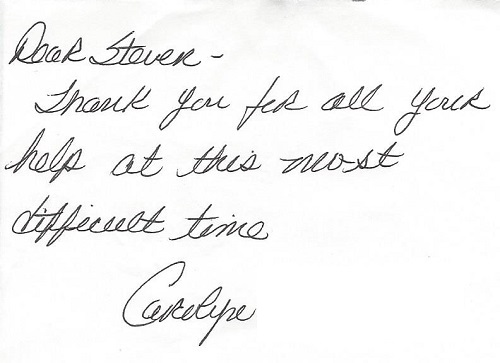 Dear Steven -
Thank you for all your
help at this most
difficult time
Carolyne